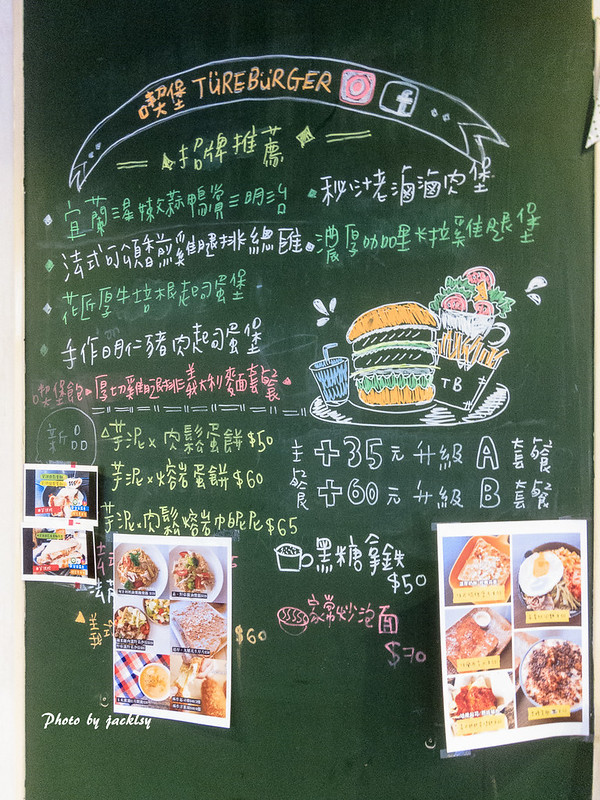 喫堡 TÜREBÜRGER
招牌推薦
宜蘭澤辣蒜鴨賞三明治
秘汁老滷滷肉堡
法式可頌香煎雞腿排總匯
濃厚咖哩卡拉雞腿堡
花匠厚牛培根起司蛋堡
手作明仁豬肉起司蛋堡
喫堡飽 厚切雞腿排義大利麵套餐
TB
新品
芋泥x肉鬆蛋餅 $50
芋泥x熔岩蛋餅 $60
芋泥x肉鬆熔岩帕尼尼 $65
主餐 +35元升級 A 套餐
+60元升級 B 套餐
黑糖拿鐵
$50
家常炒泡面
$70
$60
Photo by jacklsy